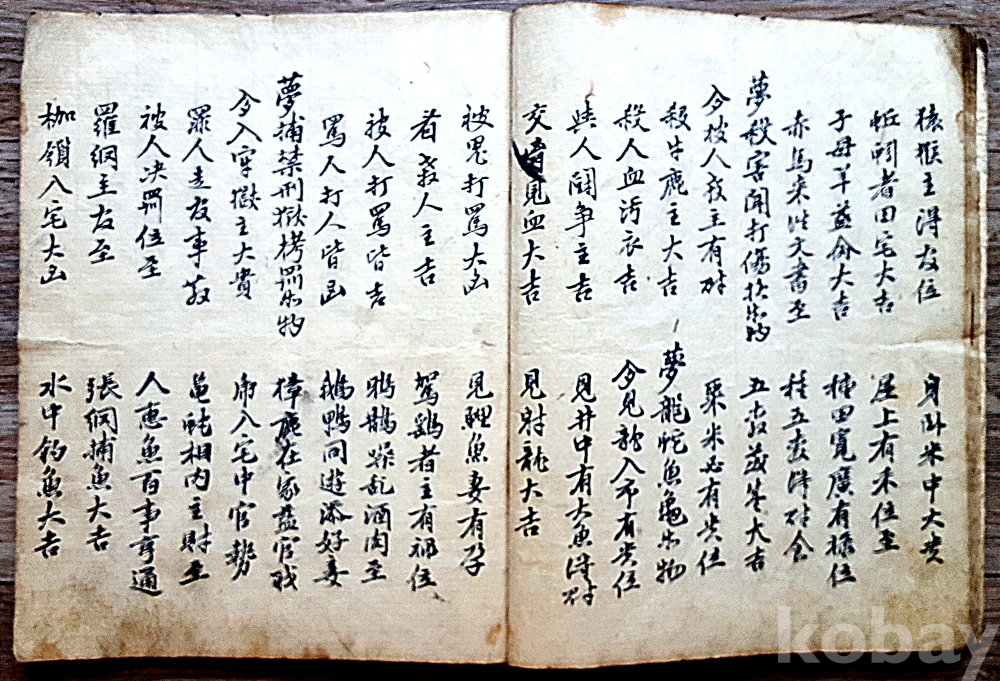 猿猴主得友位
蚯蚓者田宅大吉
子母羊並命大吉
赤馬来往文書至
夢殺害鬪打傷損出物
今被人殺主有財
殺牛鹿主大吉
殺人血污衣吉
與人鬪争主吉
交見血大吉
身卧米中大貴
屋上有禾位至
種田寬廣有祿位
種五穀得財金
五穀茂盛大吉
粟米必有貴位
夢龍蛇魚龜出物
今見龍入有貴位
見井中有大魚得財
見射龍大吉
被鬼打罵大凶
者殺人主吉
被人打罵皆吉
罵人打人皆凶
夢捕禁刑獄栲罰出物
今入牢獄主大貴
罪人走友事散
被人决罰位至
羅網主友至
枷鎖入宅大凶
見鯉魚妻有孕
鴛鷄者主有祿位
鵶鵲噪乱酒肉至
鵝鴨同遊添好妾
獐鹿在家益官職
虎入宅中官勢
龜蛇相内主財至
人惠魚百事亨通
張網捕魚大吉
水中釣魚大吉
kobay